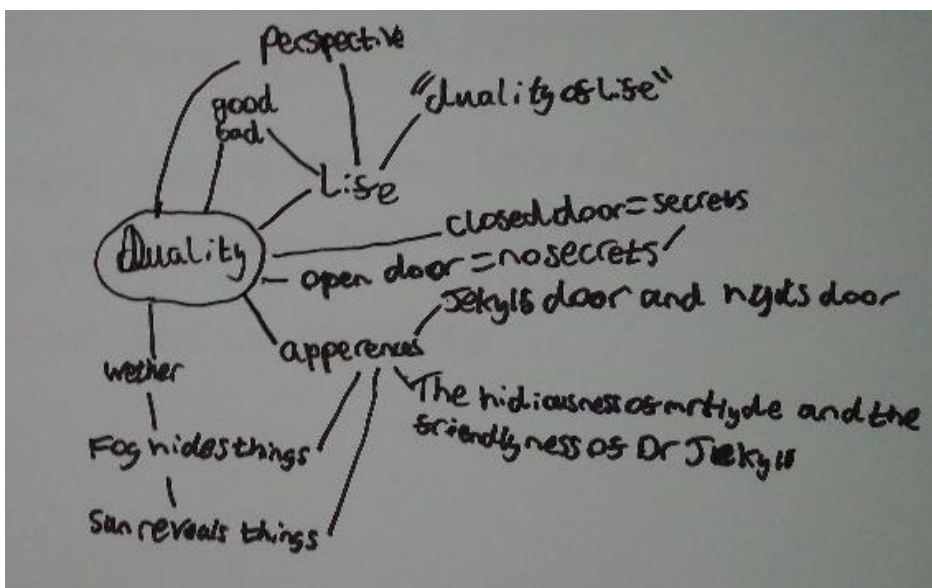 Perspective
good
bad
"duality of Life"
Life
closed door = secrets
Duality
open door = no secrets
Jekylls door and hyds door
apperences
wether
The hidiousness of mr Hyde and the
friendlyness of Dr Jekyll
Fog hides things
Sun reveals things